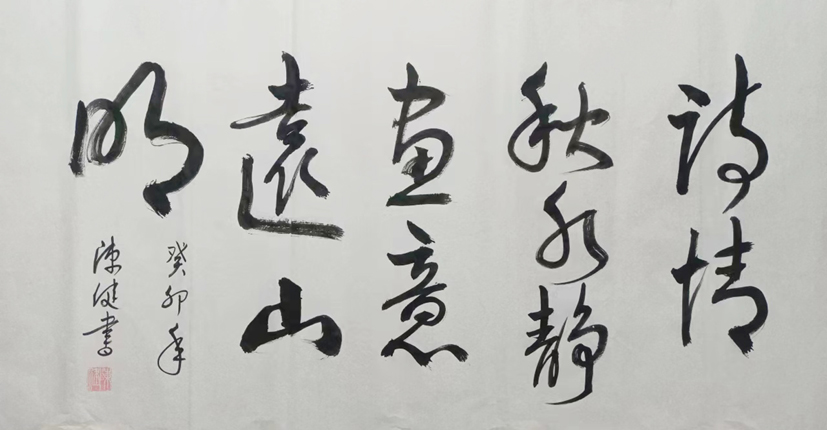 詩情
秋水静
画意
遠山
明
癸卯年
陳健書